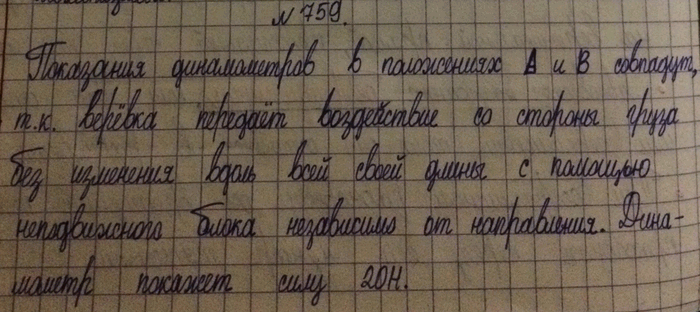 N 759.
Показания динамометров в положениях А и В совпадут,
т.к. верёвка передаёт воздействие со стороны груза
без изменения вдоль всей своей длины с помощью
неподвижного блока независимо от направления. Дина-
мометр покажет силу 20Н.